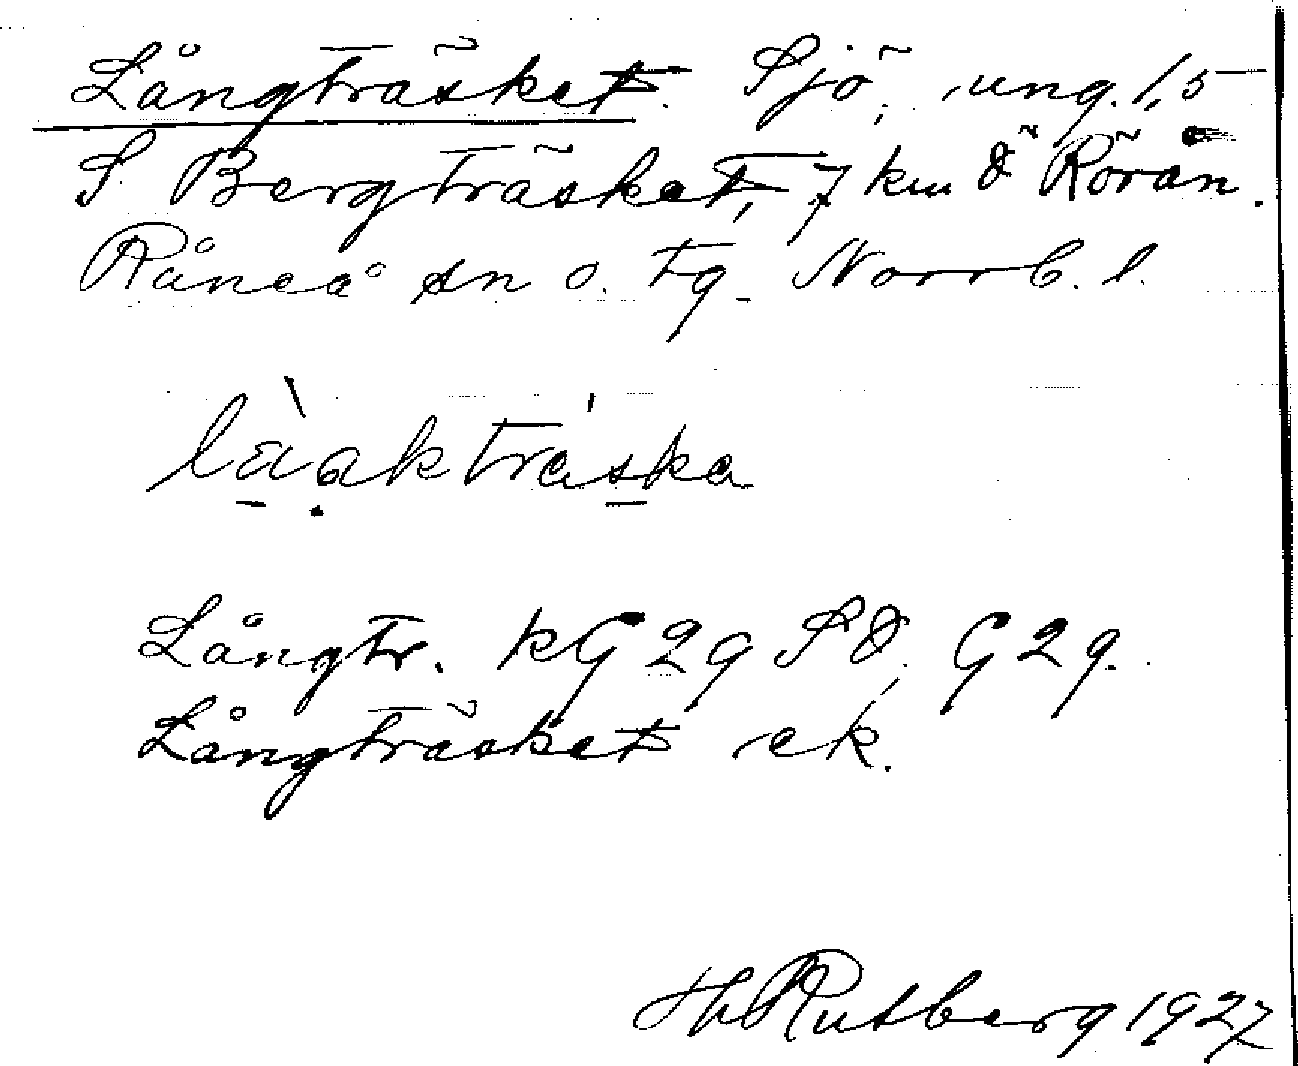 Långträsket. Sjö, ung. 1,5
S. Bergträsket, 7 km Ö Rörån.
Råneå sn o. tg. Norrb. l.
làakträska
Långtr. kG 29 SÖ, G 29.
Långträsket ek.
Rutberg 1927